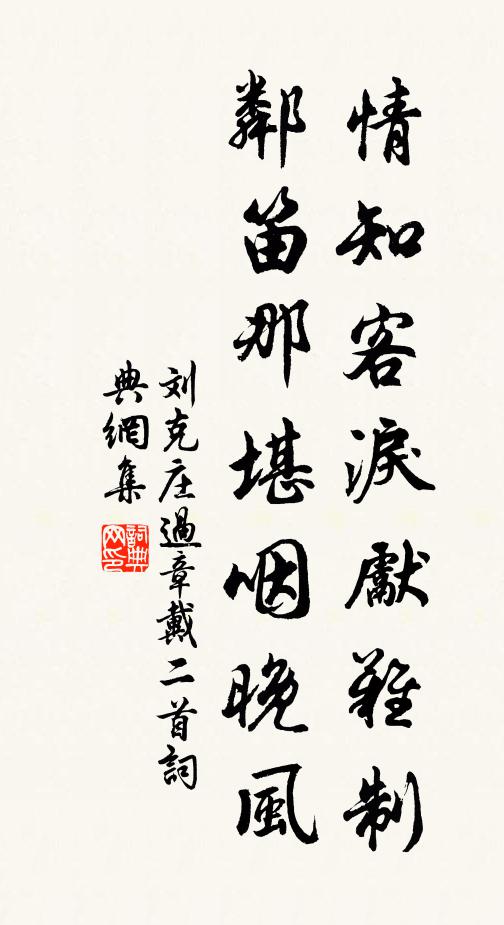 情知客淚獻難制
鄰笛那堪咽晚風
刘克庄過章戴二首詞
典網集
詞典
网印